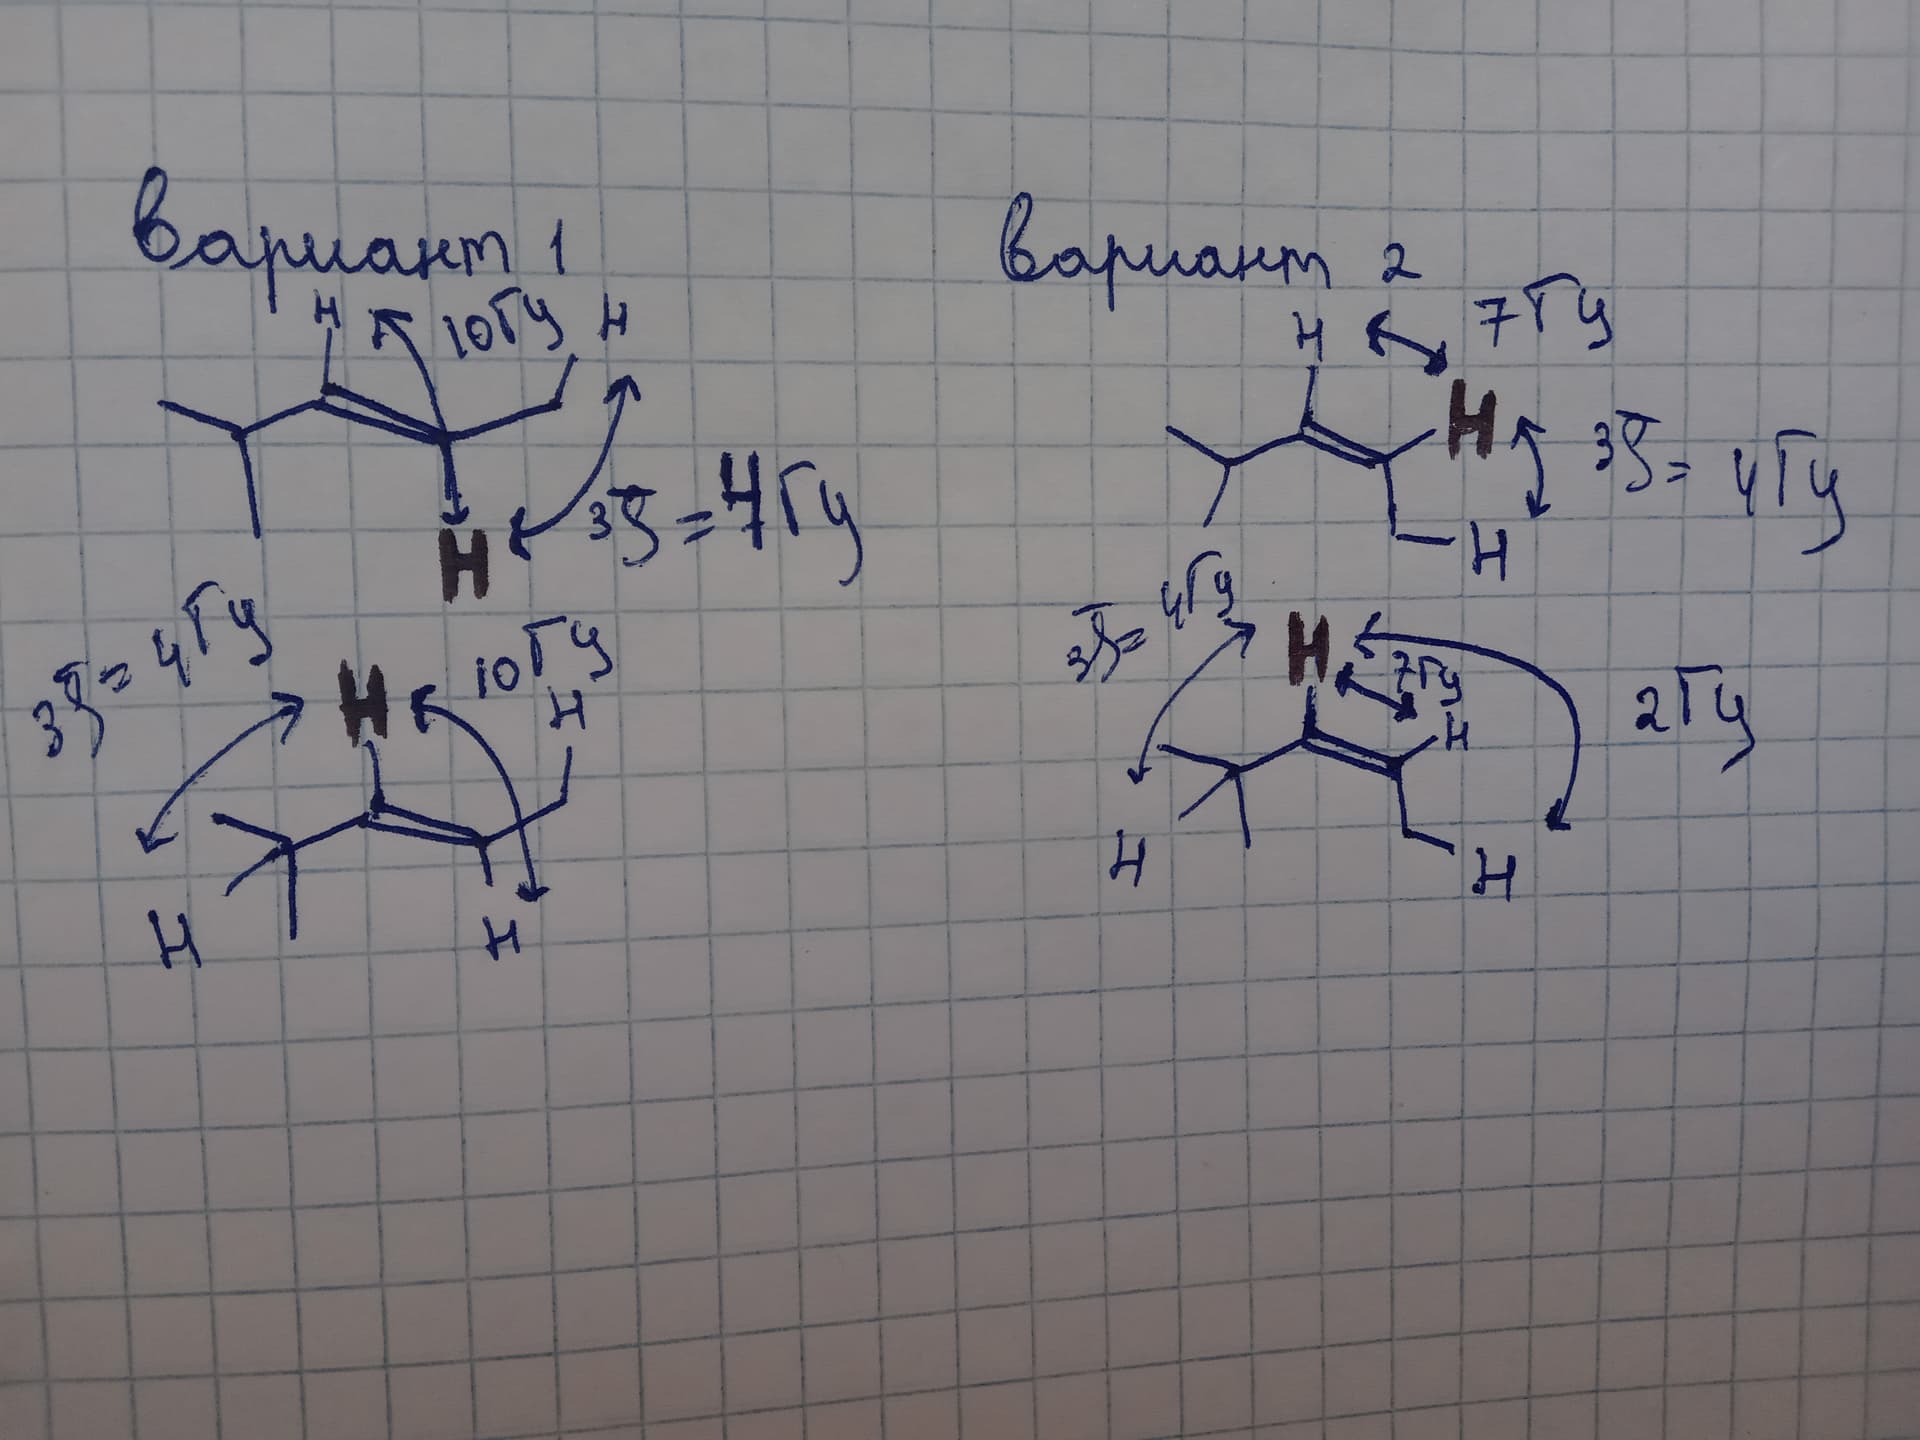 Вариант 1
H 10Гц H
H
3J = 4Гц
3J = 4Гц
H 10Гц H
H H
Вариант 2
H 7Гц
H
3J = 4Гц
H
3J = 4Гц
H 7Гц H
2Гц
H H